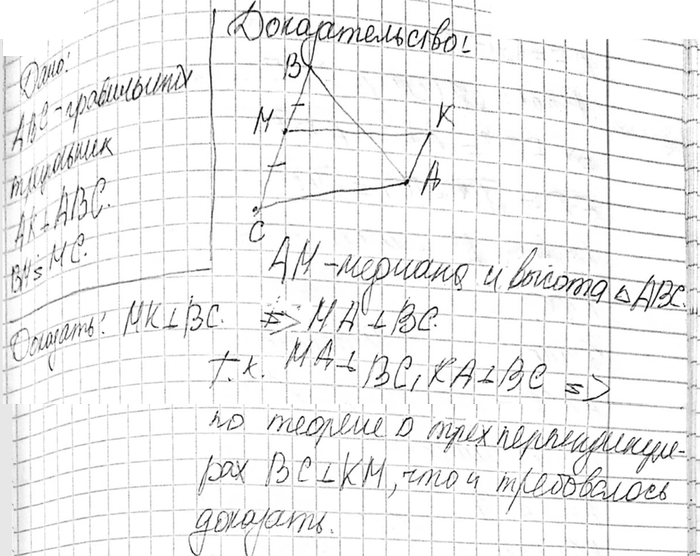 Дано:
ABC-правильный
треугольник
AK⊥ABC.
BM=MC.
Доказать: MK⊥BC.
Доказательство:
B
M
K
A
C
AM-медиана и высота △ABC.
=> MA⊥BC.
т.к. MA⊥BC, KA⊥BC =>
по теореме о трех перпендикуля-
рах BC⊥KM, что и требовалось
доказать.